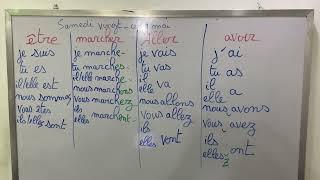 Samedi mai
être
je suis
tu es
il/elle est
nous sommes
vous êtes
ils/elles sont
marcher
je marche-
tu marches-
il/elle marche-
nous marchons
vous marchez
ils
elles marchent
Aller
je vais
tu vas
il
elle va
nous allons
vous allez
ils
elles vont
avoir
j'ai
tu as
il
elle a
nous avons
vous avez
ils
elles ont
z